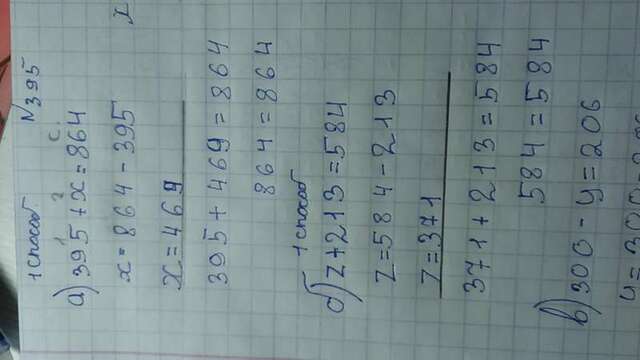 N395
1 способ
1 2 с.
а) 395 + x = 864
x = 864 - 395
x = 469
395 + 469 = 864
864 = 864
1 способ
б) z + 213 = 584
z = 584 - 213
z = 371
371 + 213 = 584
584 = 584
в) 300 - y = 206
y = 300
x